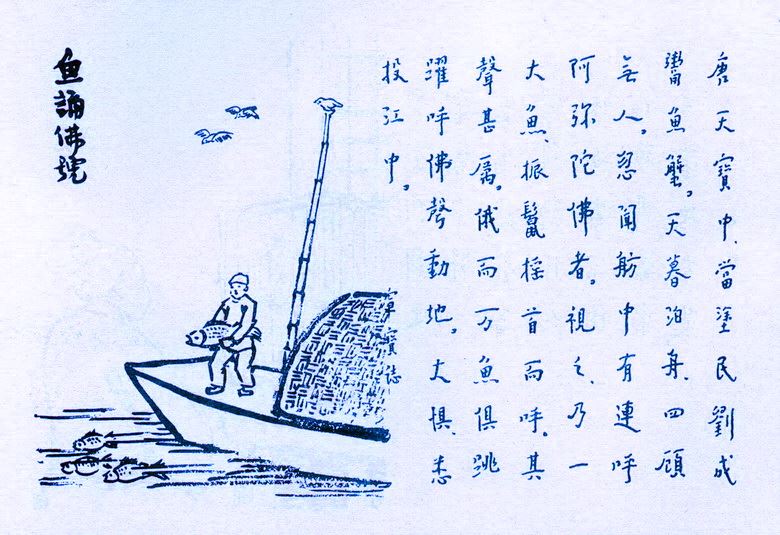 唐天寶中、當塗民劉成
鬻魚蟹。天暮泊舟、四顧
無人。忽聞舫中有連呼
阿弥陀佛者。視之、乃一
大魚、振鬣摇首而呼。其
聲甚厲。俄而万魚俱跳
躍呼佛聲動地。大惧、悉
投江中。
魚誦佛號